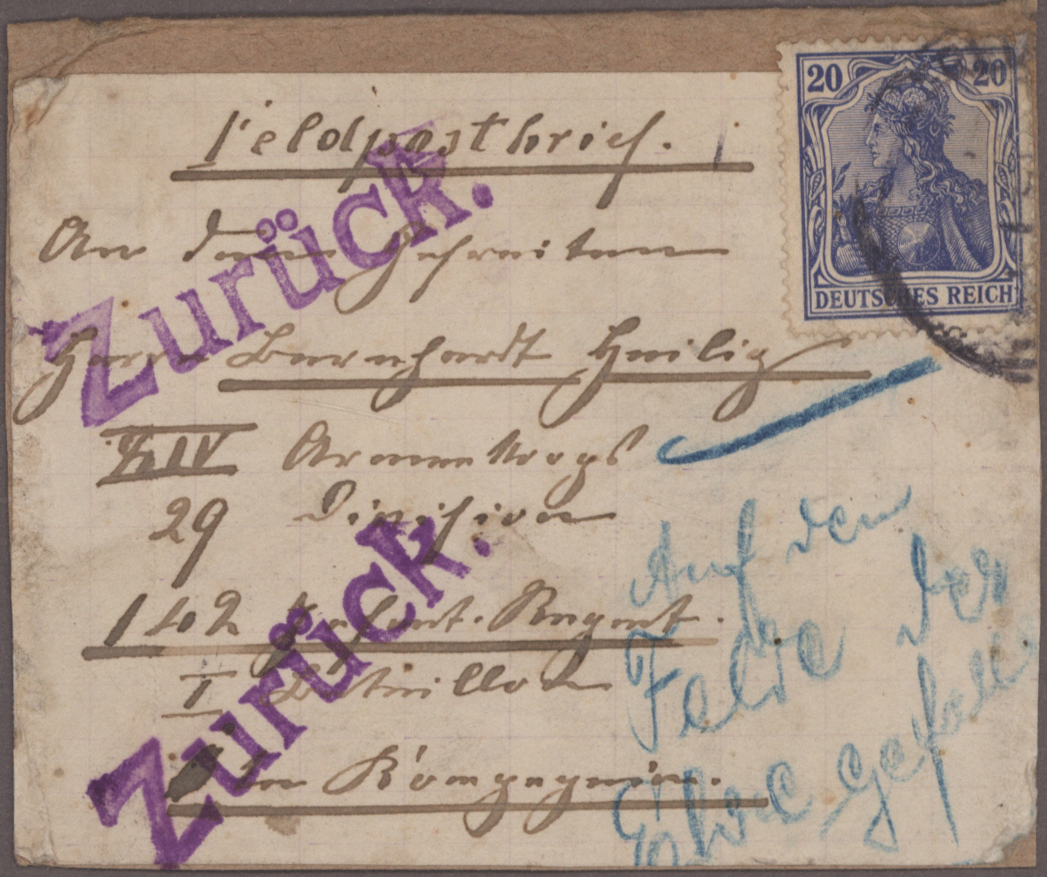 Feldpostbrief.
20 20
DEUTSCHES REICH
An den Gefreiten
Herrn Bernhardt Heilig
XIV Armee Korps
29 Division
142 Infant. Regmt.
I Batnillon
ten Kompagnie.
Zurück.
Zurück.
Auf den
Felde der
Ehre gefallen